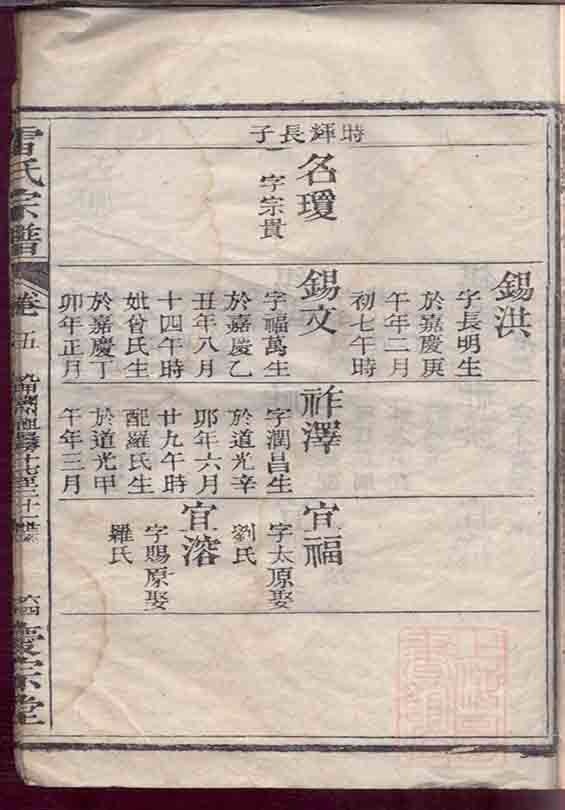 時輝長子
名瓊
字宗貴
錫洪
字長明生
於嘉慶庚
午年二月
初七午時
錫文
字福萬生
於嘉慶乙
丑年八月
十四午時
妣曾氏生
於嘉慶丁
卯年正月
祚澤
字潤昌生
於道光辛
卯年六月
廿九午時
配羅氏生
於道光甲
午年三月
宜福
字太原娶
劉氏
宜溶
字賜原娶
羅氏
雷氏宗譜
卷五
六四
慶宗堂